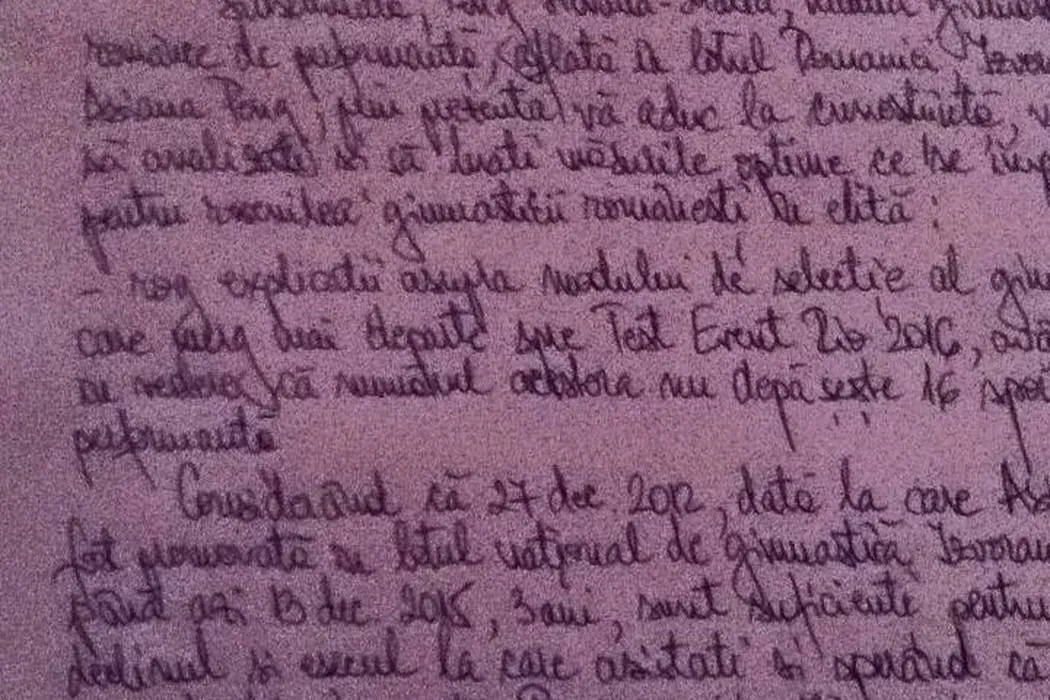 române de performanță, aflată în lotul României Izvor
prin prezenta vă aduc la cunoștință, v
să analizați și să luați măsurile optime ce se imp
pentru gimnasticii românești de elită :
- rog explicații asupra modului de selecție al gim
care merg mai departe spre Test Event Rio 2016,
în vedere că numărul acestora nu depășește 16
performanță
Considerând că 27 dec 2012, dată la care
fost promovată în lotul național de gimnastică Izvoran
până azi 13 dec 2015, 3 ani, sunt suficiente pentru
declinul și eșecul la care asistați și sperând că